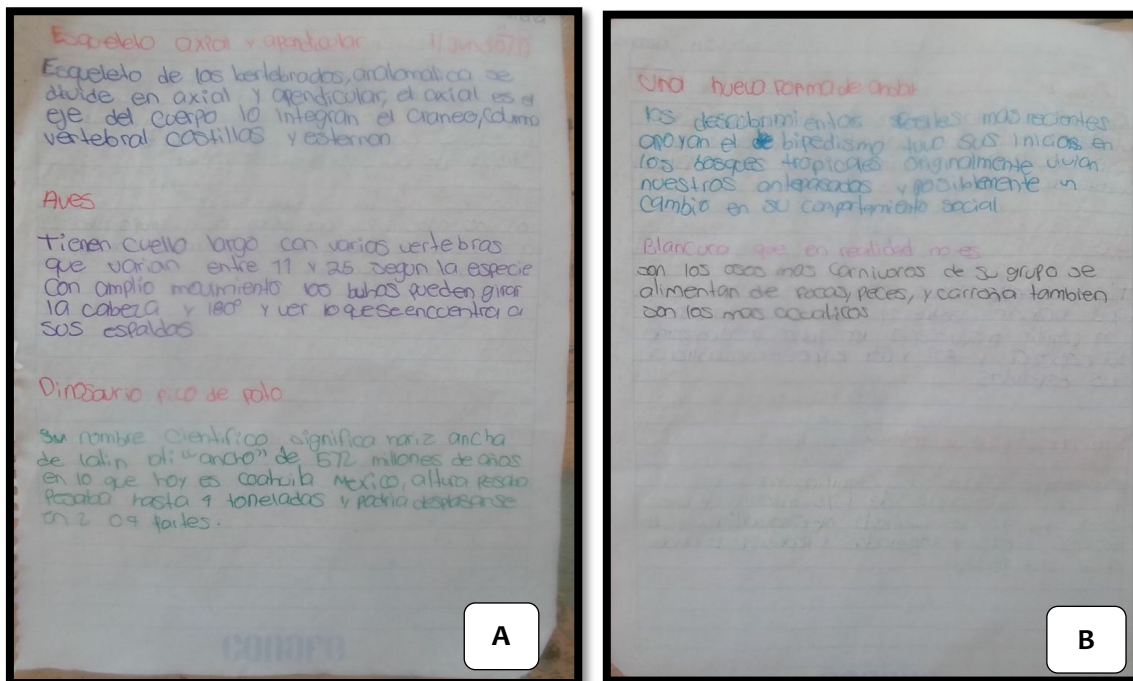 Esqueleto axial y apendicular 11 Jun
Esqueleto de los bertebrados, anatomatica se
divide en axial y apendicular, el axial es el
eje del cuerpo lo integran el craneo, columna
vertebral costillas y esternon
Aves
Tienen cuello largo con varias vertebras
que varian entre 11 y 25 segun la especie
Con amplio mavimiento los buhos pueden girar
la cabeza y 180° y ver lo que se encuentra a
sus espaldas
Dinosaurio pico de pato
Su nombre Cientifico significa nariz ancha
de latin "ancho" de 572 millones de años
en lo que hoy es coahuila Mexico, altura
Pesaba hasta 4 toneladas y podria desplasarse
en 2 o 4 partes.
A
Una nueva forma de andar
los descubrimientos fosiles más recientes
apoyan el bipedismo tuvo sus inicios en
los bosques tropicales originalmente vivian
nuestros antepasados y posiblemente un
cambio en su comportamiento social
Blancura que en realidad no es
son los osos mas Carnivoros de su grupo se
alimentan de focas, peces, y carroña tambien
son los mas acualicos
B